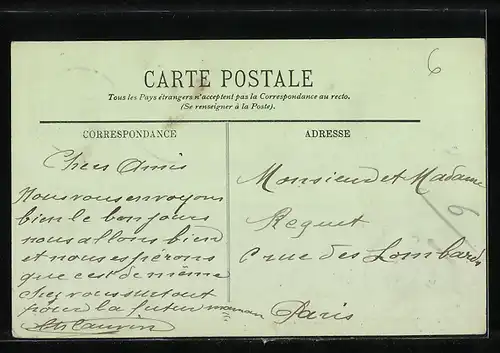 6
CARTE POSTALE
Tous les Pays étrangers n'acceptent pas la Correspondance au recto.
(Se renseigner à la Poste).
CORRESPONDANCE
Chers Amis
Nous vous envoyons
bien le bonjours
nous allons bien
et nous espérons
que c'est de même
chez vous surtout
pour la futur maman
ADRESSE
Monsieur et Madame
Requet
6 rue des Lombards
Paris
6